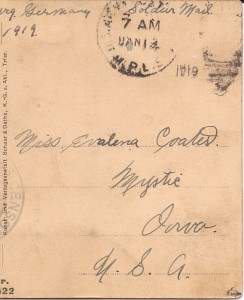 Germany
Soldier Mail.
1919.
7 AM
JAN 14
1919
Miss. Evalena Coates.
Mystic
Iowa.
U. S. A.
Kunst- und Verlagsanstalt Schaar & Dathe, K.-G. a. Akt., Trier.
P.
522